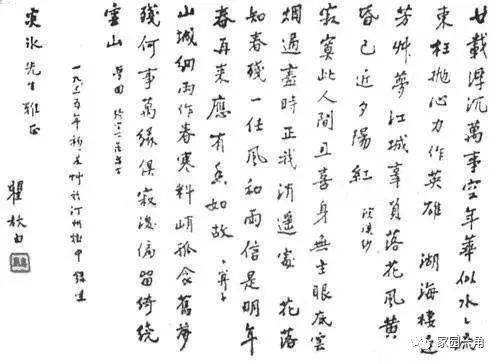 廿載浮沉萬事空年華似水々流
東枉抛心力作英雄 湖海棲遲
芳艸夢江城辜負落花風黃
昏已近夕陽紅 浣溪沙
寂寞此人間且喜身無主眼底雲
烟過盡時正我逍遥處 花落
知春殘一任風和雨信是明年
春再來應有香如故 卜算子
山城細雨作春寒料峭孤衾舊夢
殘何事萬緣俱寂後偏留綺繞
雲山 夢回
一九三五年初 艸於汀州獄中 録呈
先生雅正
瞿秋白
家园